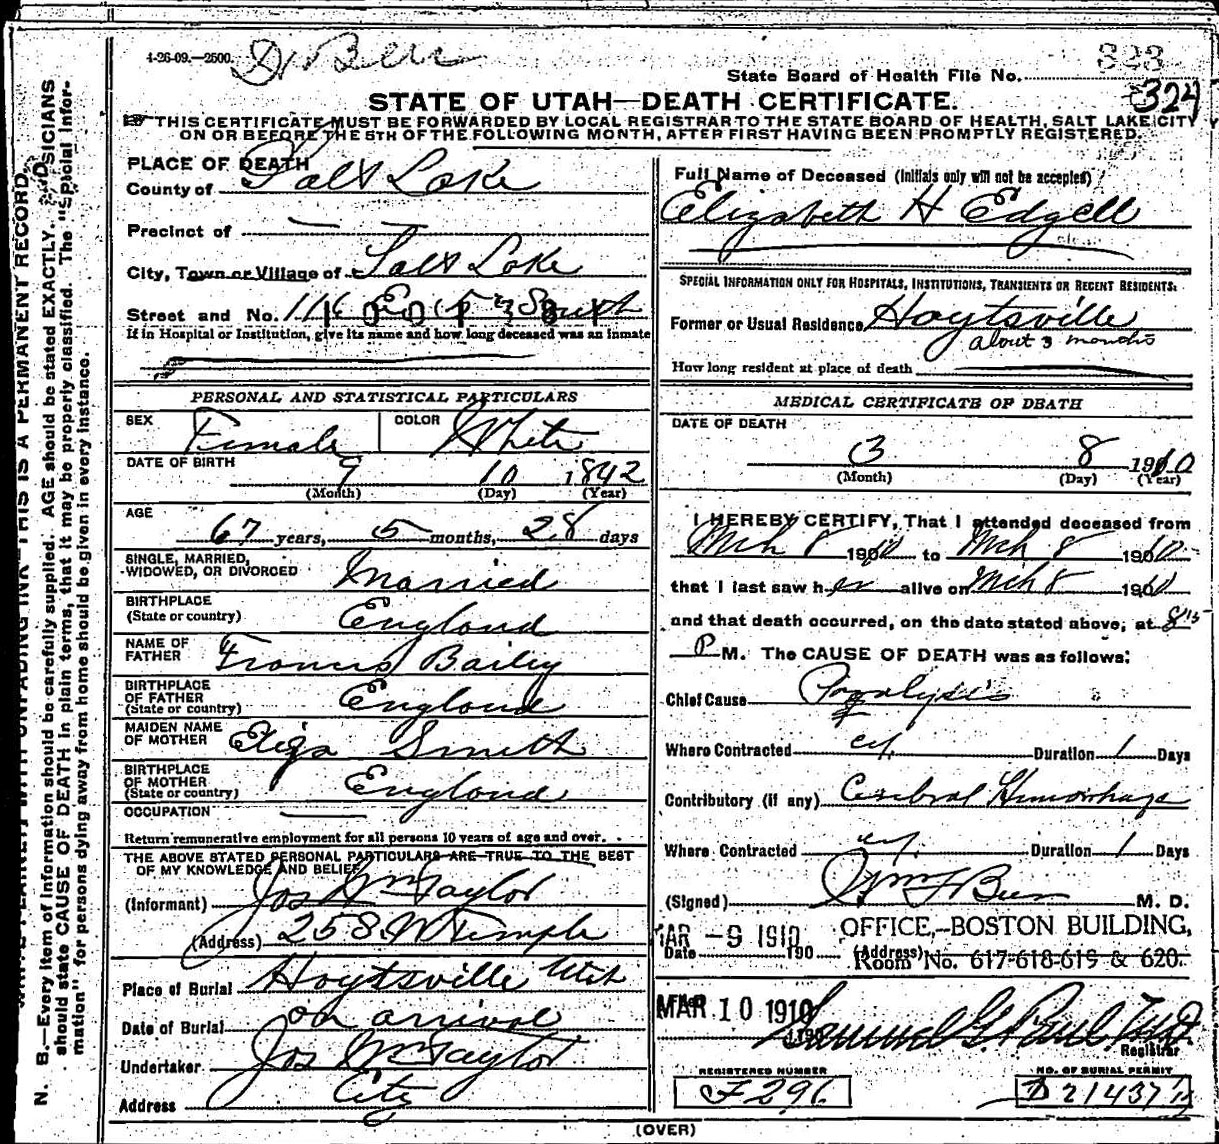 4-26-09.—2500. Dr Beer
State Board of Health File No. 323
324
STATE OF UTAH—DEATH CERTIFICATE.
THIS CERTIFICATE MUST BE FORWARDED BY LOCAL REGISTRAR TO THE STATE BOARD OF HEALTH, SALT LAKE CITY
ON OR BEFORE THE 5TH OF THE FOLLOWING MONTH, AFTER FIRST HAVING BEEN PROMPTLY REGISTERED.
PLACE OF DEATH
County of Salt Lake
Precinct of —
City, Town or Village of Salt Lake
Street and No. 116 E 3 South
If in Hospital or Institution, give its name and how long deceased was an inmate
PERSONAL AND STATISTICAL PARTICULARS
SEX Female COLOR White
DATE OF BIRTH 9 10 1842
(Month) (Day) (Year)
AGE
67 years, 5 months, 28 days
SINGLE, MARRIED,
WIDOWED, OR DIVORCED Married
BIRTHPLACE
(State or country) England
NAME OF
FATHER Francis Bailey
BIRTHPLACE
OF FATHER
(State or country) England
MAIDEN NAME
OF MOTHER Eliza Smith
BIRTHPLACE
OF MOTHER
(State or country) England
OCCUPATION —
Return remunerative employment for all persons 10 years of age and over.
THE ABOVE STATED PERSONAL PARTICULARS ARE TRUE TO THE BEST
OF MY KNOWLEDGE AND BELIEF
(Informant) Jos Wm Taylor
(Address) 258 W Temple
Place of Burial Hoytsville Utah
Date of Burial on arrival
Undertaker Jos Wm Taylor
Address City
Full Name of Deceased (Initials only will not be accepted)
Elizabeth H Edgell
SPECIAL INFORMATION ONLY FOR HOSPITALS, INSTITUTIONS, TRANSIENTS OR RECENT RESIDENTS:
Former or Usual Residence Hoytsville
about 3 months
How long resident at place of death
MEDICAL CERTIFICATE OF DEATH
DATE OF DEATH
3 8 1910
(Month) (Day) (Year)
I HEREBY CERTIFY, That I attended deceased from
Mch 8 1910 to Mch 8 1910
that I last saw her alive on Mch 8 1910
and that death occurred, on the date stated above, at 8 15
P M. The CAUSE OF DEATH was as follows:
Chief Cause Paralysis
Where Contracted cy. Duration 1 Days
Contributory (if any) Cerebral Hemorrhage
Where Contracted cy. Duration 1 Days
(Signed) Wm F Beer M. D.
MAR -9 1910 OFFICE,-BOSTON BUILDING,
Date 190 (Address) ROOM NO. 617-618-619 & 620.
MAR 10 1910 Samuel G. Paul
190 Registrar
REGISTERED NUMBER NO. OF BURIAL PERMIT
F 296 D 21437
(OVER)
WRITE PLAINLY WITH UNFADING INK—THIS IS A PERMANENT RECORD.
N. B.—Every item of information should be carefully supplied. AGE should be stated EXACTLY. PHYSICIANS
should state CAUSE OF DEATH in plain terms, that it may be properly classified. The "Special Infor-
mation" for persons dying away from home should be given in every instance.